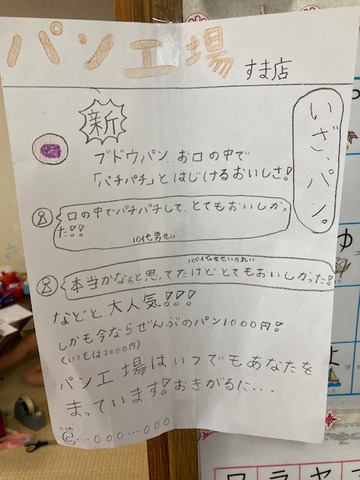 パン工場 すま店
いざ、パン。
新
ブドウパン お口の中で
「パチパチ」とはじけるおいしさ!
口の中でパチパチして、とてもおいしかっ
た!!
10代男せい
100代女せいのれい
本当かなぁと思ってたけどとてもおいしかった!!
などと大人気!!!
しかも今ならぜんぶのパン1000円!
(いつもは2000円)
パン工場はいつでもあなたを
まっています!おきがるに・・・
・・・000-・・・000
ゆ
よ
ワラヤマ